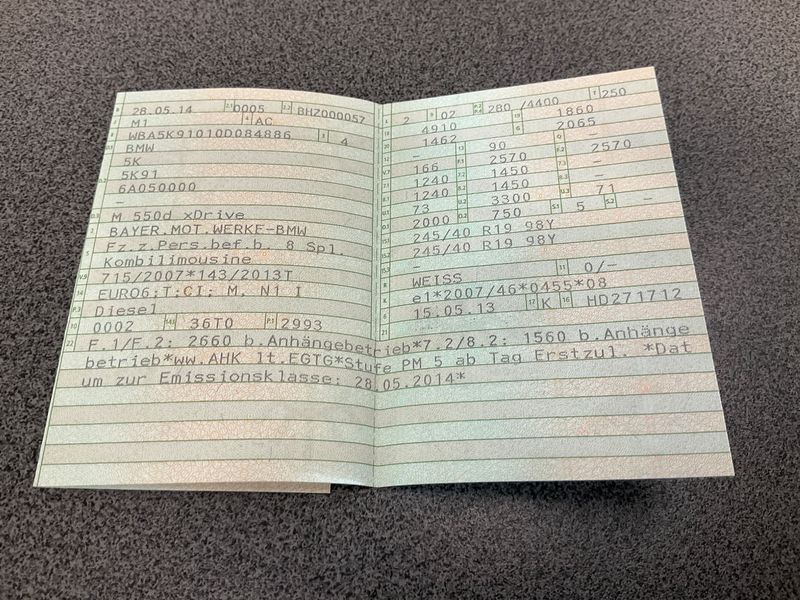 28.05.14 0005 BHZ000057
M1 AC
WBA5K91010D084886 4
BMW
5K
5K91
6A050000
–
M 550d xDrive
BAYER.MOT.WERKE-BMW
Fz.z.Pers.bef.b. 8 Spl.
Kombilimousine
715/2007*143/2013T
EURO6;T;CI; M, N1 I
Diesel
0002 36T0 2993
2 02 280 /4400 250
4910 1860
1462 2065
– 90
166 2570 2570
1240 1450 –
1240 1450 –
73 3300 71
2000 750 5 –
245/40 R19 98Y
245/40 R19 98Y
–
WEISS 0/–
e1*2007/46*0455*08
15.05.13 K HD271712
F.1/F.2: 2660 b.Anhängebetrieb*7.2/8.2: 1560 b.Anhänge
betrieb*ww.AHK lt.EGTG*Stufe PM 5 ab Tag Erstzul. *Dat
um zur Emissionsklasse: 28.05.2014*